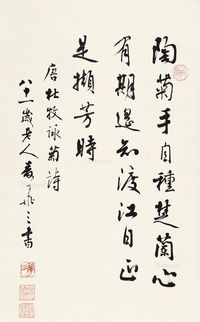 陶菊手自種楚蘭心
有期遥知渡江日正
是擷芳時
唐杜牧詠菊詩
八十一歲老人書